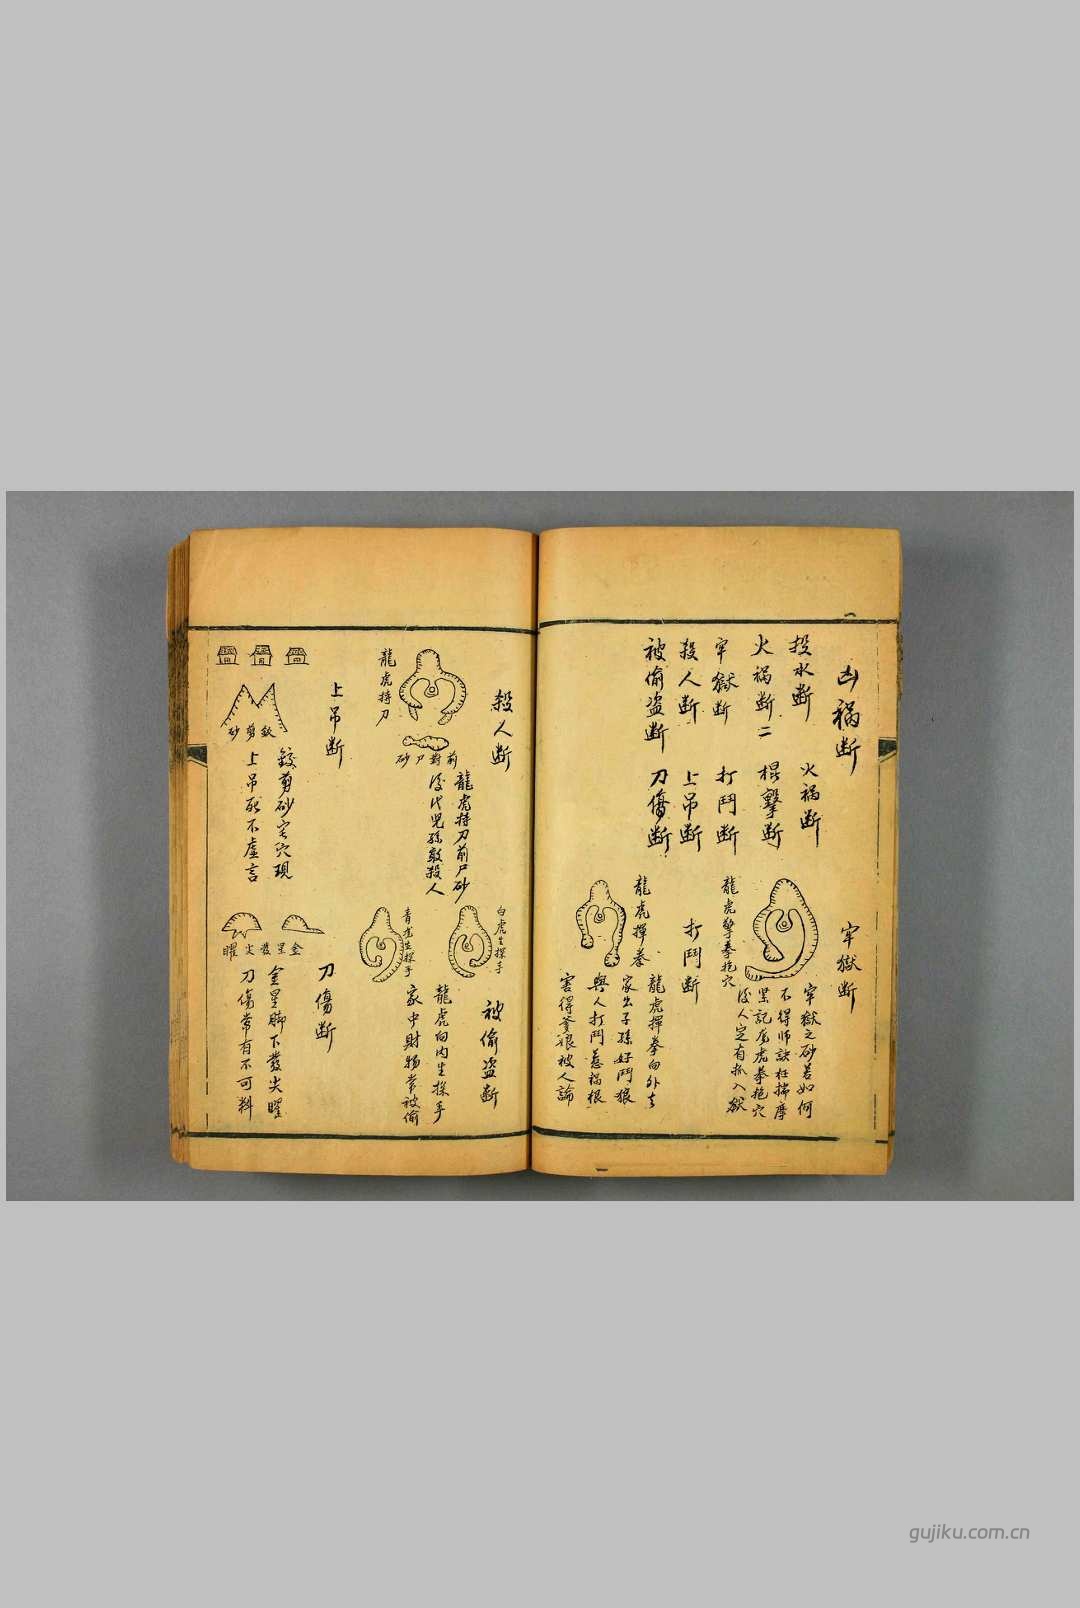 凶禍断
投水断
火禍断
火禍断二
棍擊断
牢獄断
打鬥断
殺人断
上吊断
被偷盗断
刀傷断
牢獄断
龍虎擎拳抱穴
牢獄之砂若如何
不得师訣枉揣摩
黑記龍虎拳抱穴
後人定有抓入獄
打鬥断
龍虎揮拳
龍虎揮拳向外去
家出子孫好鬥狼
與人打鬥惹禍根
害得爹娘被人論
殺人断
龍虎持刀
前對尸砂
龍虎持刀前尸砂
後代児孫敢殺人
被偷盗断
白虎生探手
青龙生探手
龍虎向内生探手
家中財物常被偷
上吊断
鉸剪砂
鉸剪砂宅穴現
上吊死不虚言
刀傷断
金星發尖曜
金星脚下發尖曜
刀傷常有不可料
gujiku.com.cn